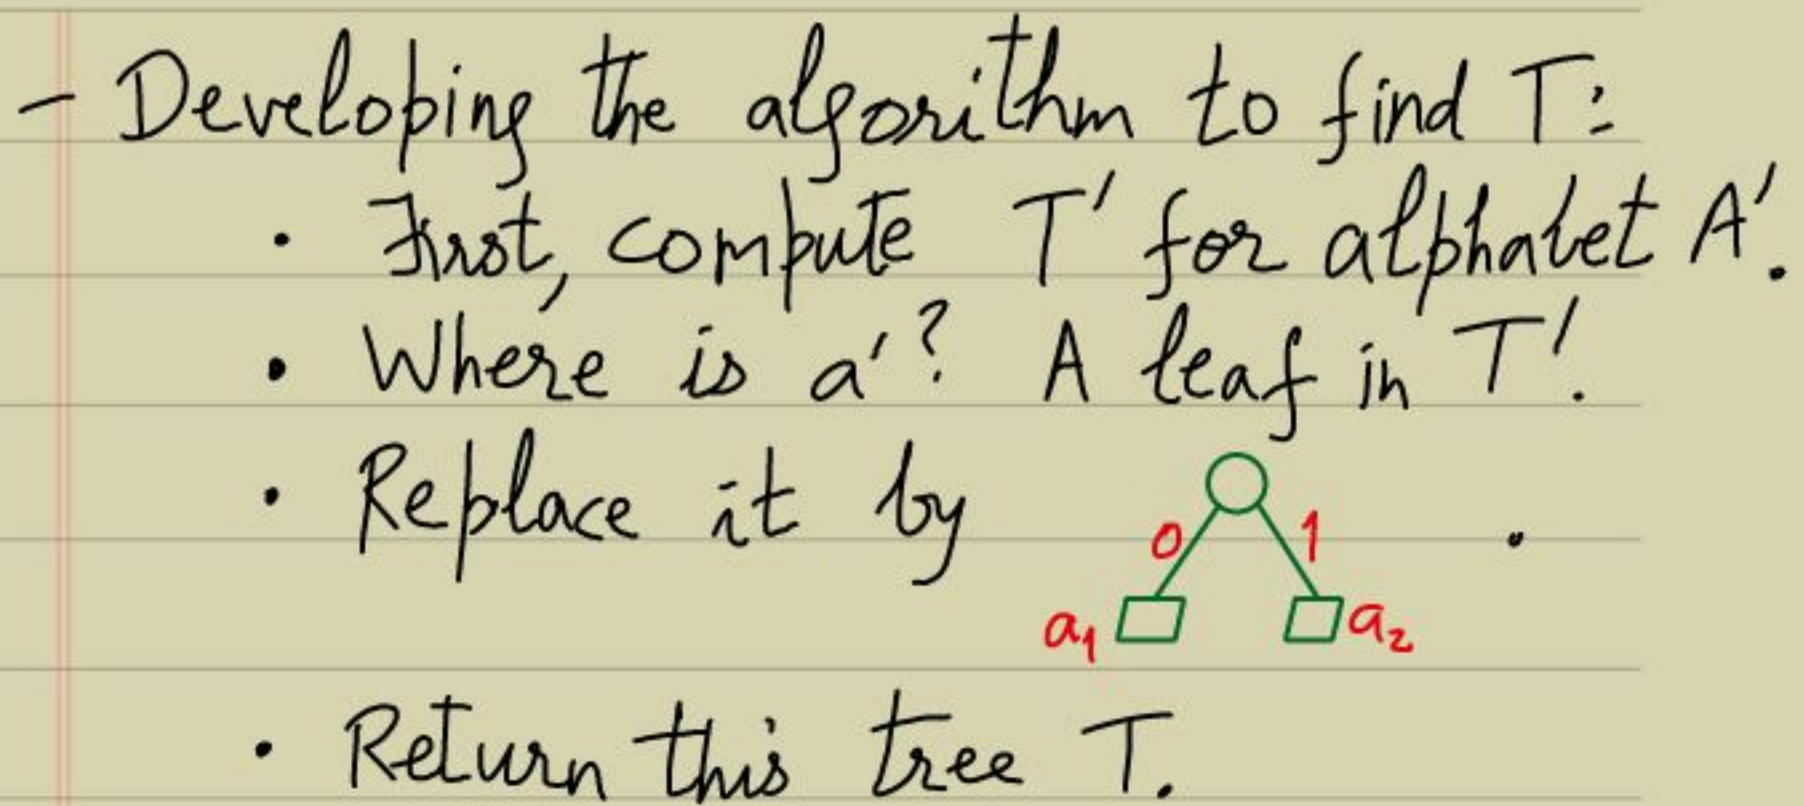 - Developing the algorithm to find T:
· First, compute T' for alphabet A'.
· Where is a'? A leaf in T'.
· Replace it by
0 1 .
a1 a2
· Return this tree T.